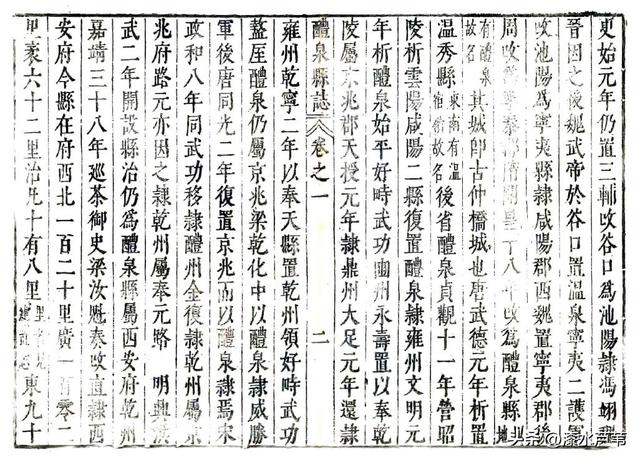 更始元年仍置三輔改谷口為池陽隸馮翊
晉因之後魏武帝於谷口置溫泉寧夷二護軍
改池陽為寧夷縣隸咸陽郡西魏置寧夷郡後
周改寧夷郡隋開皇十八年改為醴泉縣地
有醴泉故名其城即古仲橋城也唐武德元年析置
溫秀縣東南有溫故名後省醴泉貞觀十一年營昭
陵析雲陽咸陽二縣復置醴泉隸雍州文明
年析醴泉始平好畤武功豳州永壽置以奉乾
陵屬京兆郡天授元年隸鼎州大足元年還隸
醴泉縣誌 卷之一 二
雍州乾寧二年以奉天縣置乾州領好畤武功
盩厔醴泉仍屬京兆梁乾化中以醴泉隸威勝
軍後唐同光二年復置京兆而以醴泉隸焉宋
政和八年同武功移隸醴州金復隸乾州屬京
兆府路元亦因之隸乾州屬奉元路 明興洪
武二年開設縣治仍為醴泉縣屬西安府乾州
嘉靖三十八年巡茶御史梁汝魁奏改直隸西
安府今縣在府西北一百二十里廣一百零二
里袤六十二里治九十有八里東九十
头条@漆水芦苇